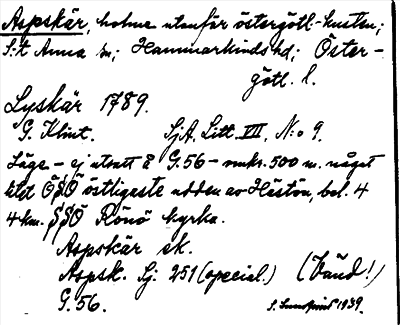 Aspskär, holme utanför östergötl-kusten;
S:t Anna sn; Hammarkinds hd; Öster-
götl. l.
Lyskär 1789.
G. Klint. SjA. Litt. VII, N:o 9.
Läge - ej utsatt å G.56 - omkr. 500 m. något
litet ÖSÖ östligaste udden av Hästön, bel. 4
4 km. SSÖ Rönö kyrka.
Aspskär sk.
Aspsk. Sj: 251 (special.) (Vänd!)
G.56. S. Lundqvist 1939.